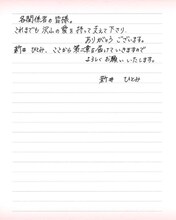 各関係者の皆様。
これまでも沢山の愛を持って支えて下さり
ありがとうございます。
新井 ひとみ、ここから第二章を届けていきますので
よろしくお願いいたします。
新井 ひとみ